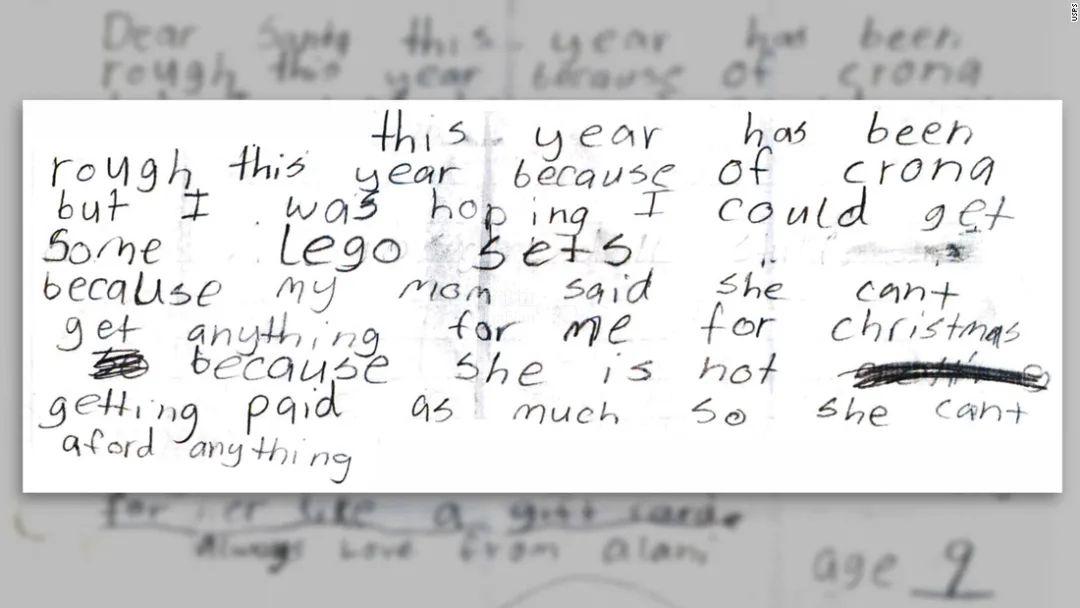 Dear Santa this year has been
rough this year because of crona
this year has been
rough this year because of crona
but I was hoping I could get
some Lego sets
because my mom said she cant
get anything for me for christmas
because she is not
getting paid as much so she cant
aford anything
for her like a gift card.
Always Love from alani
age 9
USPS